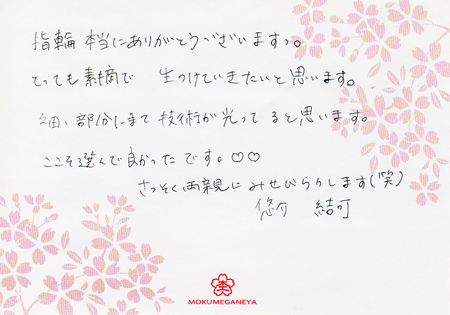 指輪 本当にありがとうございますっ。
とっても素敵で 一生つけていきたいと思います。
細い部分にまで 技術が光ってると思います。
ここそ選んで良かったです。♡♡
さっそく両親にみせびらかします(笑)
悠介 結可
MOKUMEGANEYA